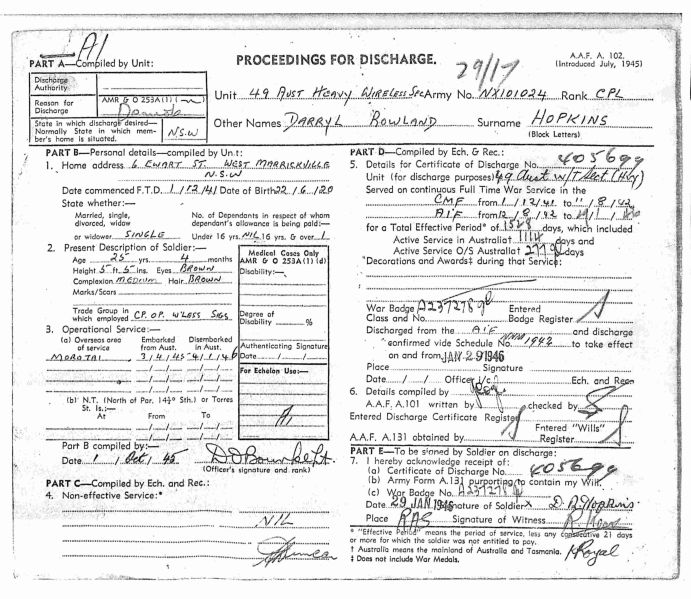 A1
PART A—Compiled by Unit:
PROCEEDINGS FOR DISCHARGE.
29/17
A.A.F. A. 102.
(Introduced July, 1945)
Discharge Authority
Reason for Discharge
AMR & O 253A(1)
Demob
State in which discharge desired—Normally State in which member's home is situated.
N.S.W
Unit 49 AUST HEAVY WIRELESS SEC Army No. NX101024 Rank CPL
Other Names DARRYL ROWLAND Surname HOPKINS
(Block Letters)
PART B—Personal details—compiled by Unit:
1. Home address 6 EWART ST. WEST MARRICKVILLE
N.S.W
Date commenced F.T.D. 1/12/41 Date of Birth 22/6/20
State whether:—
Married, single, divorced, widow or widower SINGLE
No. of Dependants in respect of whom dependant's allowance is being paid:—
Under 16 yrs. NIL 16 yrs. & over 1
2. Present Description of Soldier:—
Age 25 yrs. 4 months
Height 5 ft. 5 ins. Eyes BROWN
Complexion MEDIUM Hair BROWN
Marks/Scars
Trade Group in which employed CP. OP. W'LESS SIGS
Medical Cases Only
AMR & O 253A(1) (d)
Disability:—
Degree of Disability %
Authenticating Signature
Date / /
For Echelon Use:—
3. Operational Service:—
(a) Overseas area of service
Embarked from Aust.
Disembarked in Aust.
MOROTAI 3/4/45 4/1/46
(b) N.T. (North of Par. 14½° Sth.) or Torres St. Is.:—
At From To
Part B compiled by:—
Date 1 / Oct / 45
(Officer's signature and rank)
PART C—Compiled by Ech. and Rec.:
4. Non-effective Service:*
NIL
PART D—Compiled by Ech. & Rec.:
5. Details for Certificate of Discharge No. 405699
Unit (for discharge purposes) 49 Aust W/T Sect (Hvy)
Served on continuous Full Time War Service in the
CMF from 1/12/41 to 11/8/42
AIF from 12/8/42 to
for a Total Effective Period* of 1528 days, which included
Active Service in Australia† 1114 days and
Active Service O/S Australia‡ 277 days
Decorations and Awards‡ during that Service:
War Badge Class and No. A237278
Entered Badge Register
Discharged from the AIF and discharge
confirmed vide Schedule No. 1942 to take effect
on and from JAN 29 1946
Place Signature
Date / / Officer i/c Ech. and Rec
6. Details compiled by
A.A.F. A.101 written by checked by
Entered Discharge Certificate Register
Entered "Wills" Register
A.A.F. A.131 obtained by
PART E—To be signed by Soldier on discharge:
7. I hereby acknowledge receipt of:
(a) Certificate of Discharge No. 405699
(b) Army Form A.131 purporting to contain my Will.
(c) War Badge No. A237278
Date 29 JAN 1946 Signature of Soldier x D. R. Hopkins
Place RAS Signature of Witness
* "Effective Period" means the period of service, less any consecutive 21 days or more for which the soldier was not entitled to pay.
† Australia means the mainland of Australia and Tasmania.
‡ Does not include War Medals.